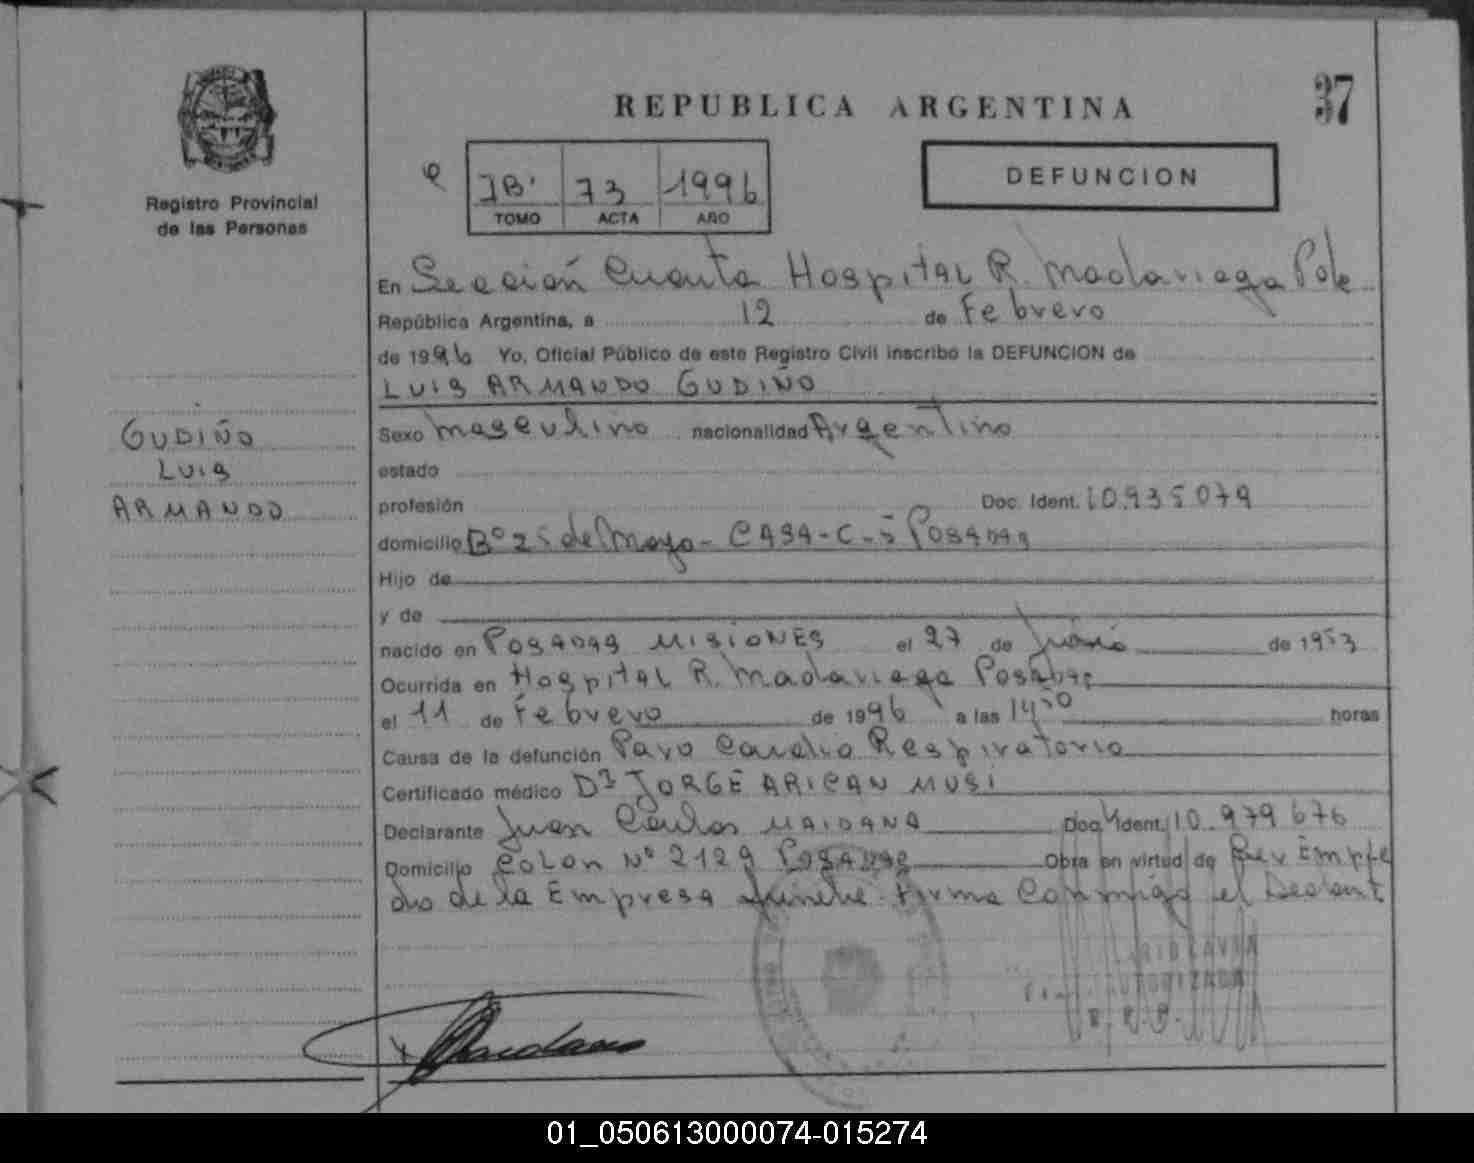 37
REPUBLICA ARGENTINA
Registro Provincial
de las Personas
1B' 73 1996
TOMO ACTA AÑO
DEFUNCION
En Sección Cuarta Hospital R. Madariaga Pde
República Argentina, a 12 de Febrero
de 1996 Yo, Oficial Público de este Registro Civil inscribo la DEFUNCION de
LUIS ARMANDO GUDIÑO
GUDIÑO
LUIS
ARMANDO
Sexo masculino nacionalidad Argentino
estado
profesión Doc. Ident. 10.935079
domicilio Bº 25 de Mayo - CASA - C - 5 POSADAS
Hijo de
y de
nacido en POSADAS MISIONES el 27 de de 1953
Ocurrida en Hospital R. Madariaga Posadas
el 11 de Febrero de 1996 a las 14 50 horas
Causa de la defunción Paro Cardio Respiratorio
Certificado médico Dr JORGE ARICAN MUSI
Declarante Juan Carlos MAIDANA Doc. Ident. 10.979676
Domicilio COLON Nº 2129 POSADAS Obra en virtud de Ser Emple
do de la Empresa fúnebre. Firma Conmigo el Declant
R. P. P.
01_050613000074-015274